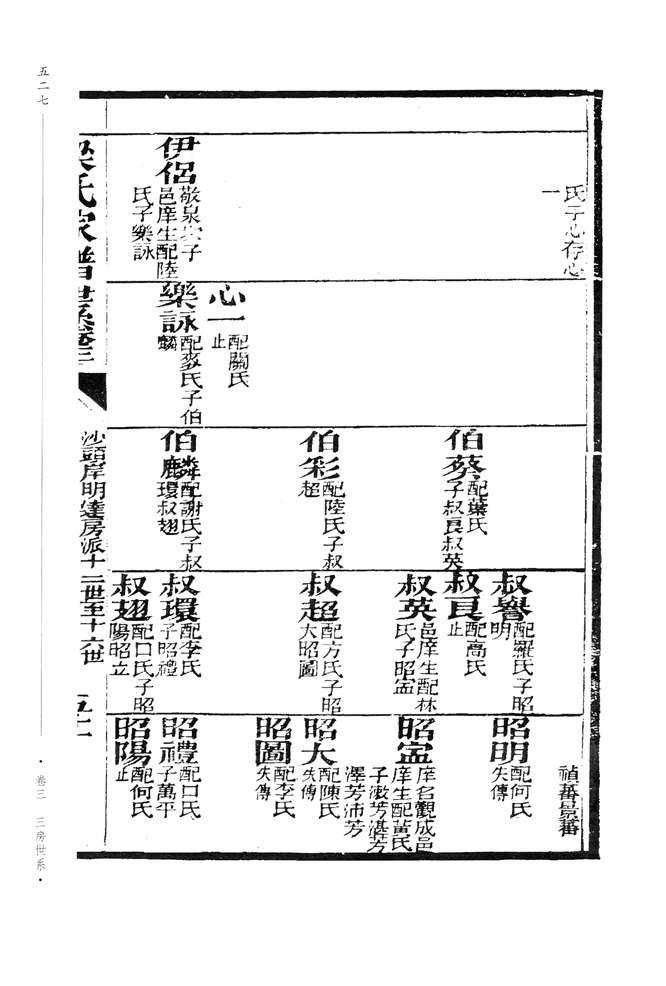 氏子心存心
一
伊侶
敬泉次子
邑庠生配陸
氏子樂詠
心一
配關氏
止
樂詠
配麥氏子伯
麟
伯蔡
配葉氏
子叔良叔英
伯彩
配陸氏子叔
超
伯麟
配謝氏子叔
環叔翅
叔譽
配羅氏子昭
明
叔良
配高氏
止
叔英
邑庠生配林
氏子昭寍
叔超
配方氏子昭
大昭圖
叔環
配李氏
子昭禮
叔翅
配口氏子昭
陽昭立
禎蕃景蕃
昭明
配何氏
失傳
昭寍
庠名觀成邑
庠生配黃氏
子澂芳湛芳
澤芳沛芳
昭大
配陳氏
失傳
昭圖
配李氏
失傳
昭禮
配口氏
子萬平
昭陽
配何氏
止
梁氏家譜世系卷三
沙頭岸明達房派十二世至十六世
五二七
卷三 三房世系